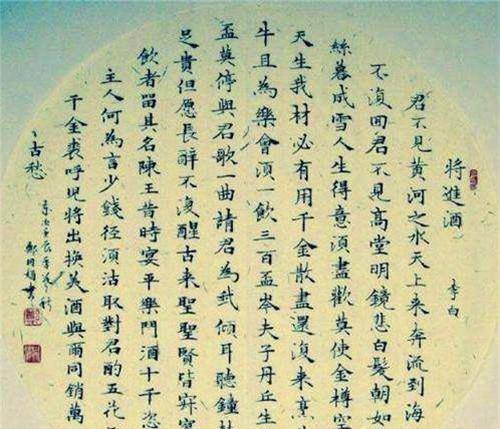 將進酒
李白
君不見黃河之水天上来奔流到海
不復回君不見高堂明鏡悲白髮朝如
絲暮成雪人生得意須盡歡莫使金樽空
天生我材必有用千金散盡還復来烹
牛且為樂會須一飲三百盃岑夫子丹丘生
盃莫停與君歌一曲請君為我傾耳聽鐘
足貴但愿長醉不復醒古来聖聖賢皆寂
飲者留其名陳王昔時宴平樂鬥酒十千恣
主人何為言少錢徑須沽取對君酌五花
千金裘呼兒將出換美酒與爾同銷萬
古愁